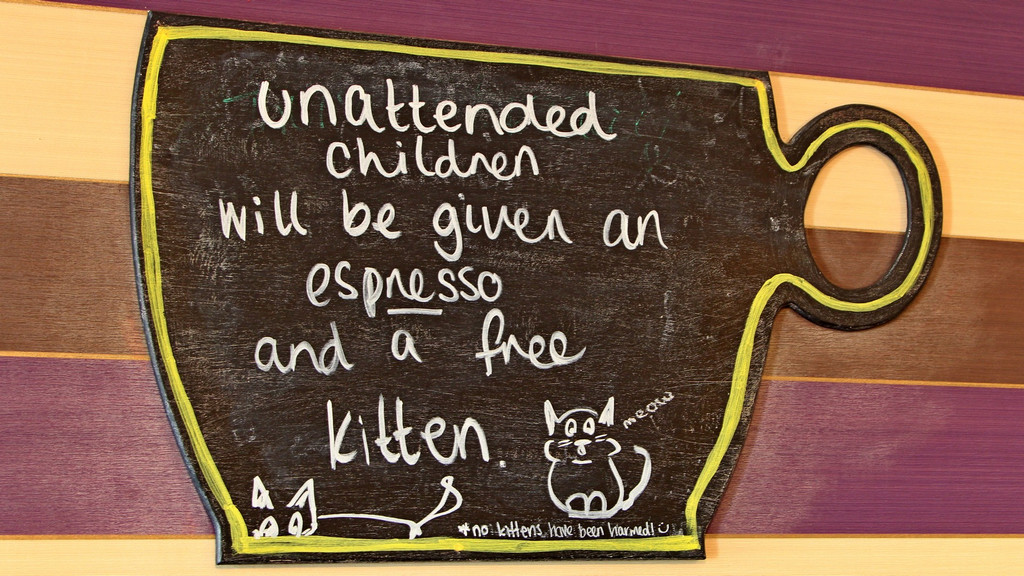 unattended
children
will be given an
espresso
and a free
kitten.
meow
*no kittens have been harmed! :)